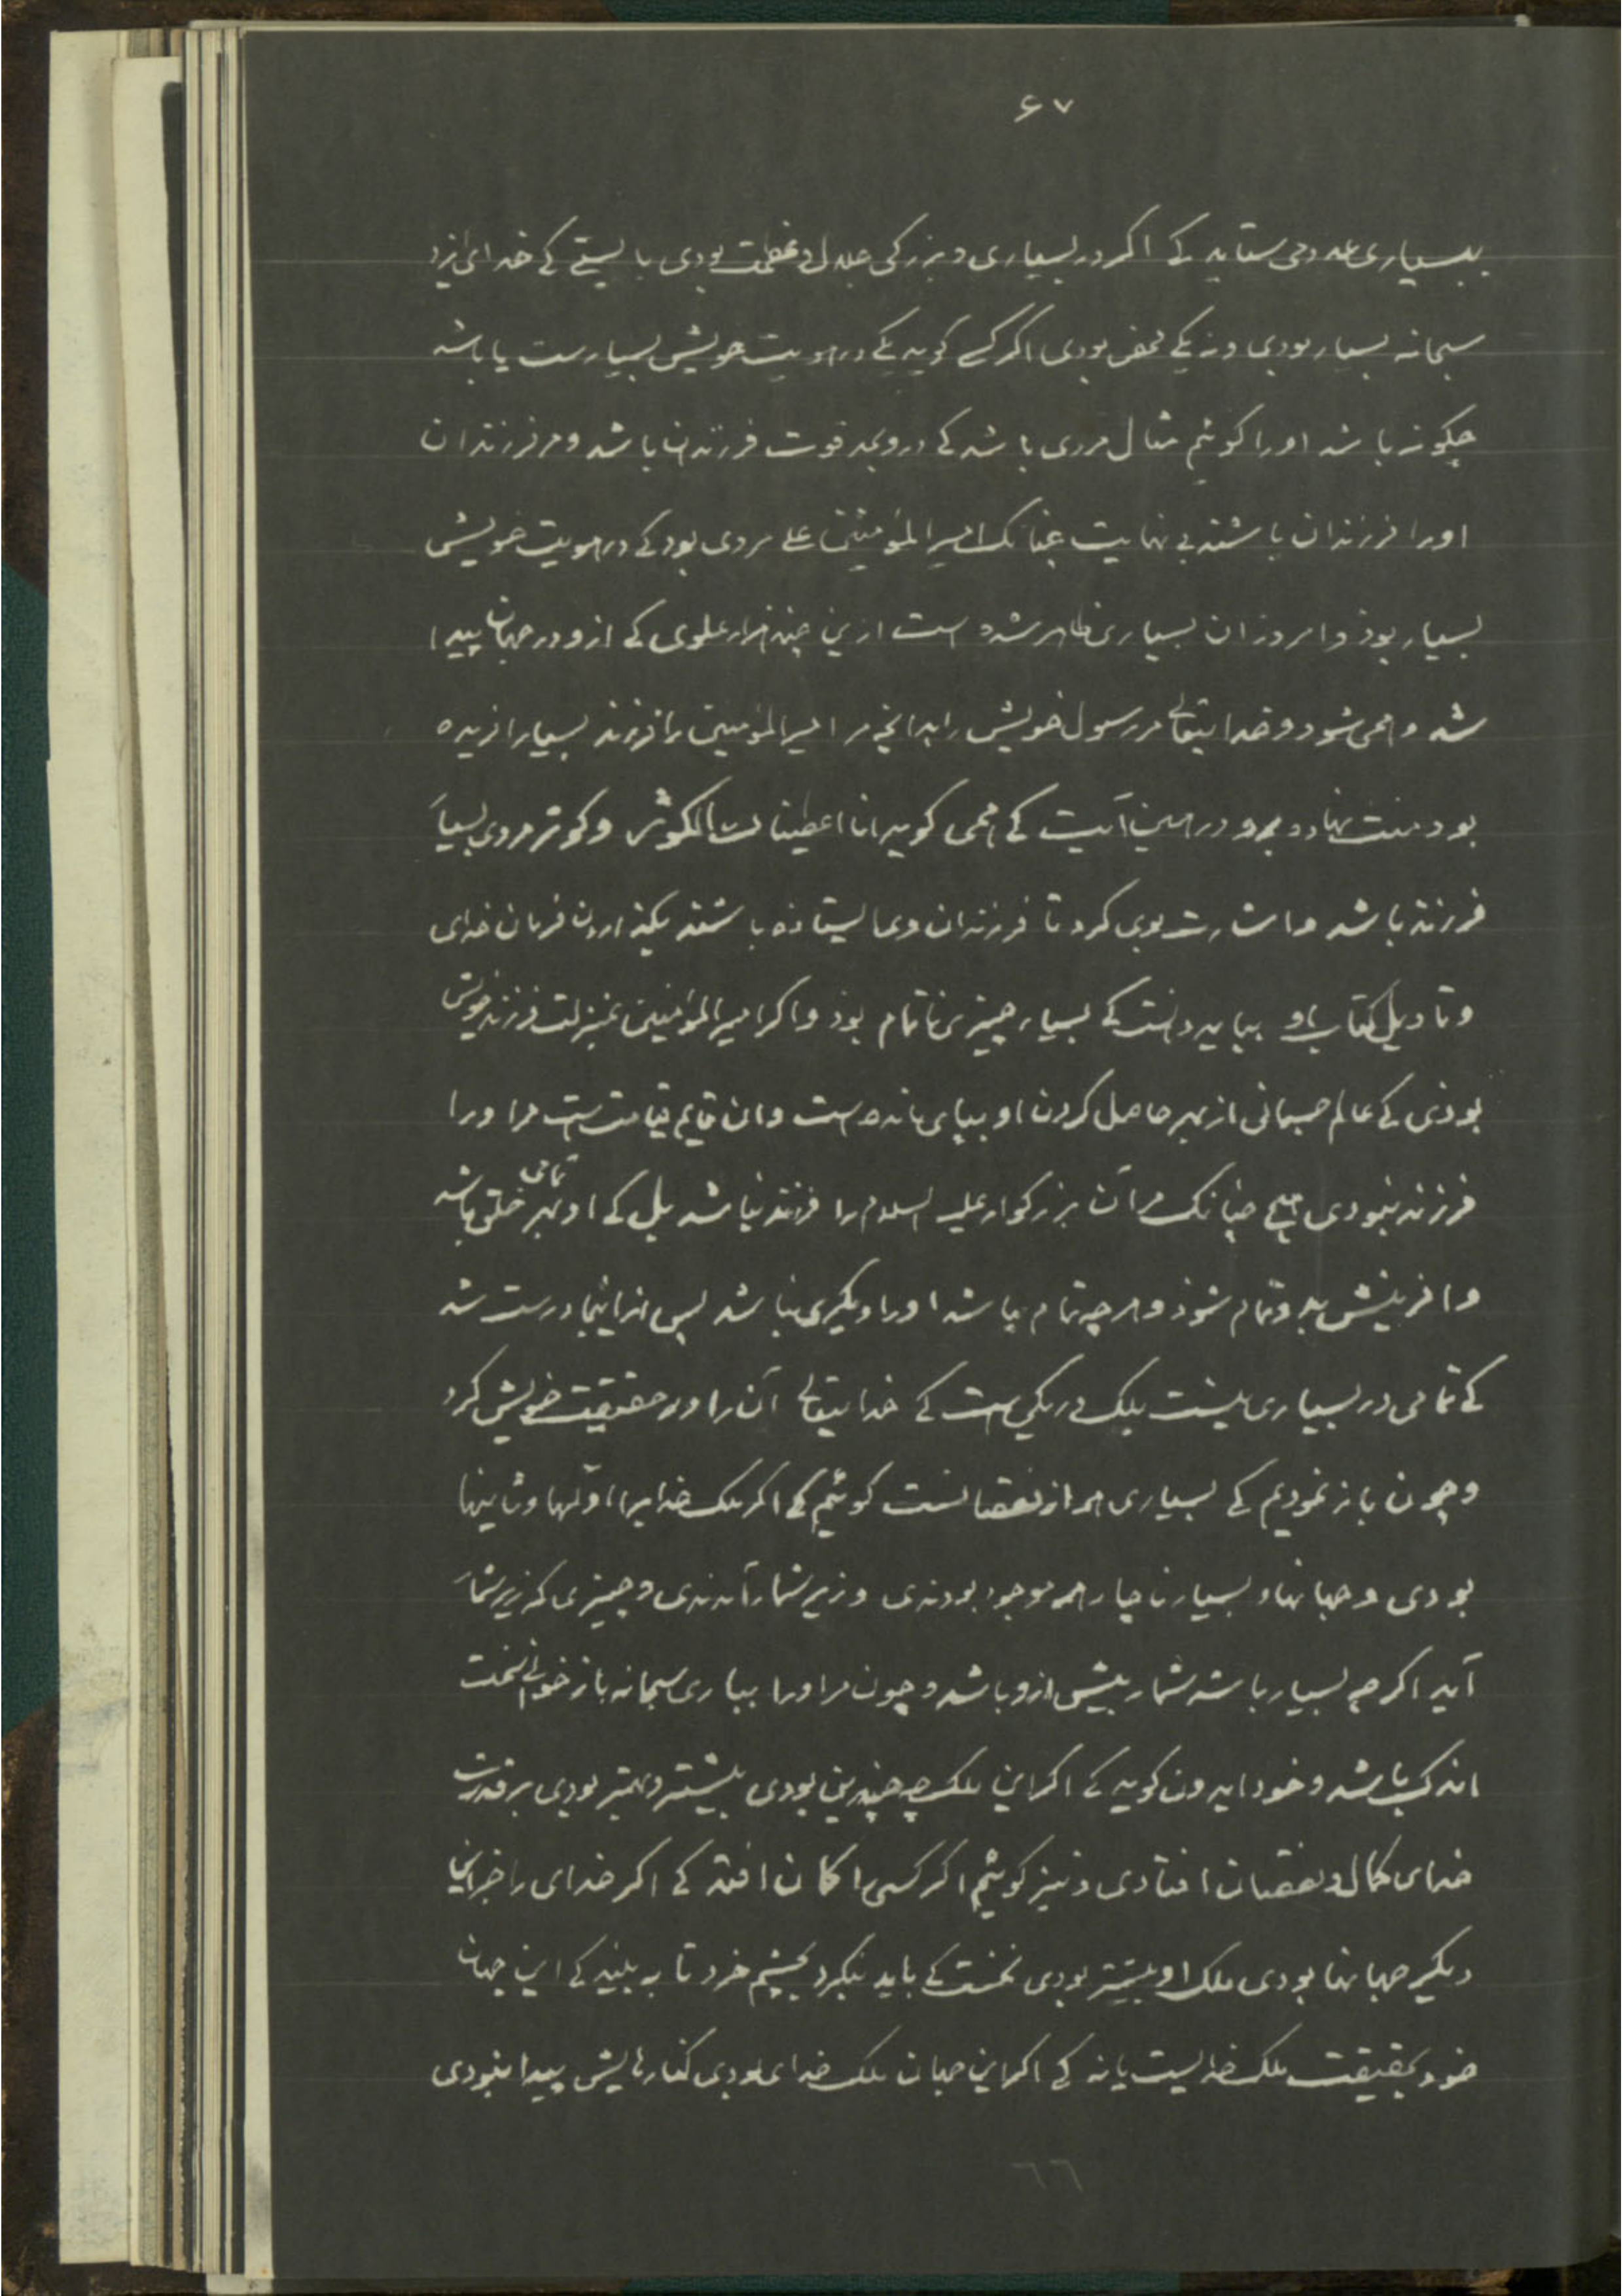 ۶۷
بسیاری عدد می ستاید کے اکر در بسیاری و بزرکی جلال و عظمت بودی بایستے کے خدای ایزد
سبحانه بسیار بودی و نه یکے محض بودی اکر کسے کوید کے در هویت خویش بسیارست یا باشد
چکونه باشد او را کوئیم مثال مردی باشد کے درو بحد قوت فرزندان باشد و مر فرزندان
او را فرزندان باشند بی نهایت چنانک امیر المؤمنین علے مردی بود کے در هویت خویش
بسیار بوذ و امروز ان بسیاری ظاهر شده است ازین چند هزار علوی کے ازو در جهان پیدا
شد و همی شود و خدایتعالے مر رسول خویش را بدانچه مر امیر المؤمنین را فرزند بسیار افریده
بود منت نهاد و برو در این آیت کے همی کوید انا اعطیناک الکوثر و کوثر مردی بسیار
فرزند باشد و اشارت بوی کرد تا فرزندان وی ایستاده باشند بکذاردن فرمان خدای
و تاویل کتاب او بباید دانست کے بسیار چیزی ناتمام بوذ و اکر امیر المؤمنین بمنزلت فرزند خویش
بوذی کے عالم جسمانی از بهر حاصل کردن او بپای مانده است و ان قایم قیامت است مر او را
فرزند نبودی هیچ چنانک مر آن بزرکوار علیه السلام را فرزند نباشد بل کے او بهر تمامی خلق باشد
و افرینش بدو تمام شوذ و هرچه تمام باشد او را دیکری نباشد پس از اینجا درست شد
کے تمامی در بسیاری نیست بلک در یکی است کے خدایتعالے آن را در حقیقت خویش کرد
و چون باز نمودیم کے بسیاری هم از نقصانست کوئیم کے اکر ملک خدایرا اولها و ثانیها
بودی و جهانهاء بسیار ناچار همه موجود بودندی و زیر شمار آمدندی و چیزی که زیر شمار
آید اکرچه بسیار باشد شمار بیش ازو باشد و چون مر او را بباری سبحانه باز خوانے سخت
اندک باشد و خود ایدون کوید کے اکر این ملک چه چندین بودی بیشتر و بهتر بودی بر قدرت
خدای کمال و نقصان افتادی و نیز کوئیم اکر کسی را کمان افتد کے اکر خدای را جز این
دیکر جهانها بودی ملک او بیشتر بودی نخست کے باید بنکرد بچشم خرد تا به بیند کے این جهان
خود بحقیقت ملک خدایست یا نه کے اکر این جهان ملک خدای بودی کنارهایش پیدا نبودی
٦٦